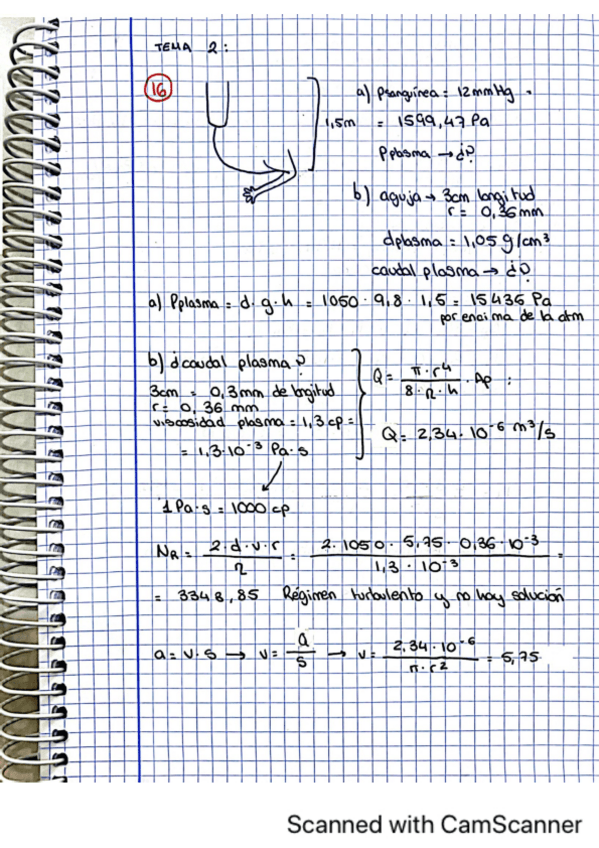 TEMA 2:
16
1,5m
a) Psanguínea = 12 mmHg.
= 1599,47 Pa
Pplasma → ¿?
b) aguja → 3cm longitud
r = 0,36 mm
dplasma = 1,05 g/cm³
caudal plasma → ¿?
a) Pplasma = d · g · h = 1050 · 9,8 · 1,5 = 15435 Pa
por encima de la atm
b) ¿caudal plasma?
3cm = 0,3mm de longitud
r = 0,36 mm
viscosidad plasma = 1,3 cp =
= 1,3·10⁻³ Pa·s
Q = π · r⁴ / 8 · η · h · Δp :
Q = 2,34 · 10⁻⁶ m³/s
1 Pa·s = 1000 cp
NR = 2·d·v·r / η = 2 · 1050 · 5,75 · 0,36 · 10⁻³ / 1,3 · 10⁻³ =
= 3348,85 Régimen turbulento y no hay solución
Q = v · s → v = Q / s → v = 2,34 · 10⁻⁶ / π · r² = 5,75
Scanned with CamScanner